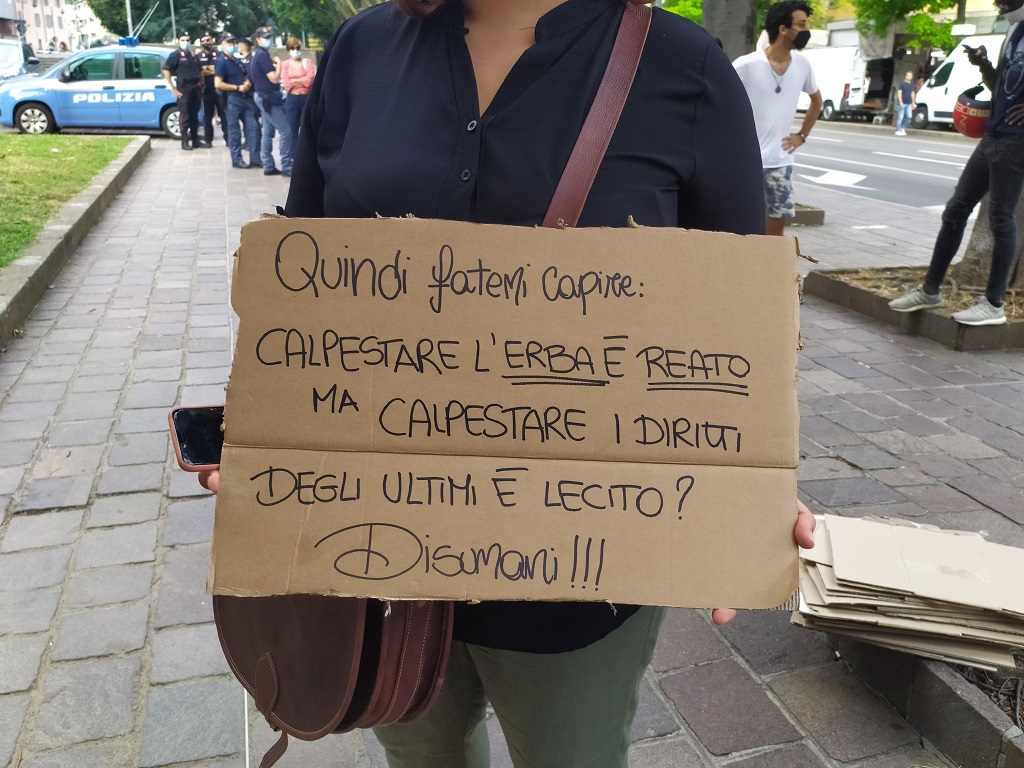 POLIZIA
Quindi fatemi capire:
CALPESTARE L'ERBA È REATO
MA CALPESTARE I DIRITTI
DEGLI ULTIMI È LECITO?
Disumani!!!